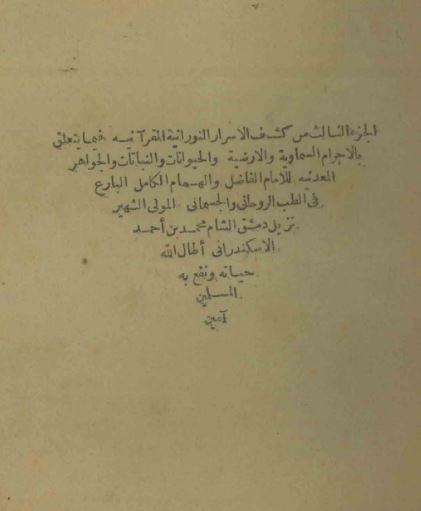 الجزء الثالث من كشف الاسرار النورانية القرآنيه فيما يتعلق
بالاجرام السماوية والارضية والحيوانات والنباتات والجواهر
المعدنيه للامام الفاضل والهمام الكامل البارع
في الطب الروحاني والجسماني المولى الشهير
نزيل دمشق الشام محمد بن أحمد
الاسكندراني أطال الله
حياته ونفع به
المسلمين
آمين